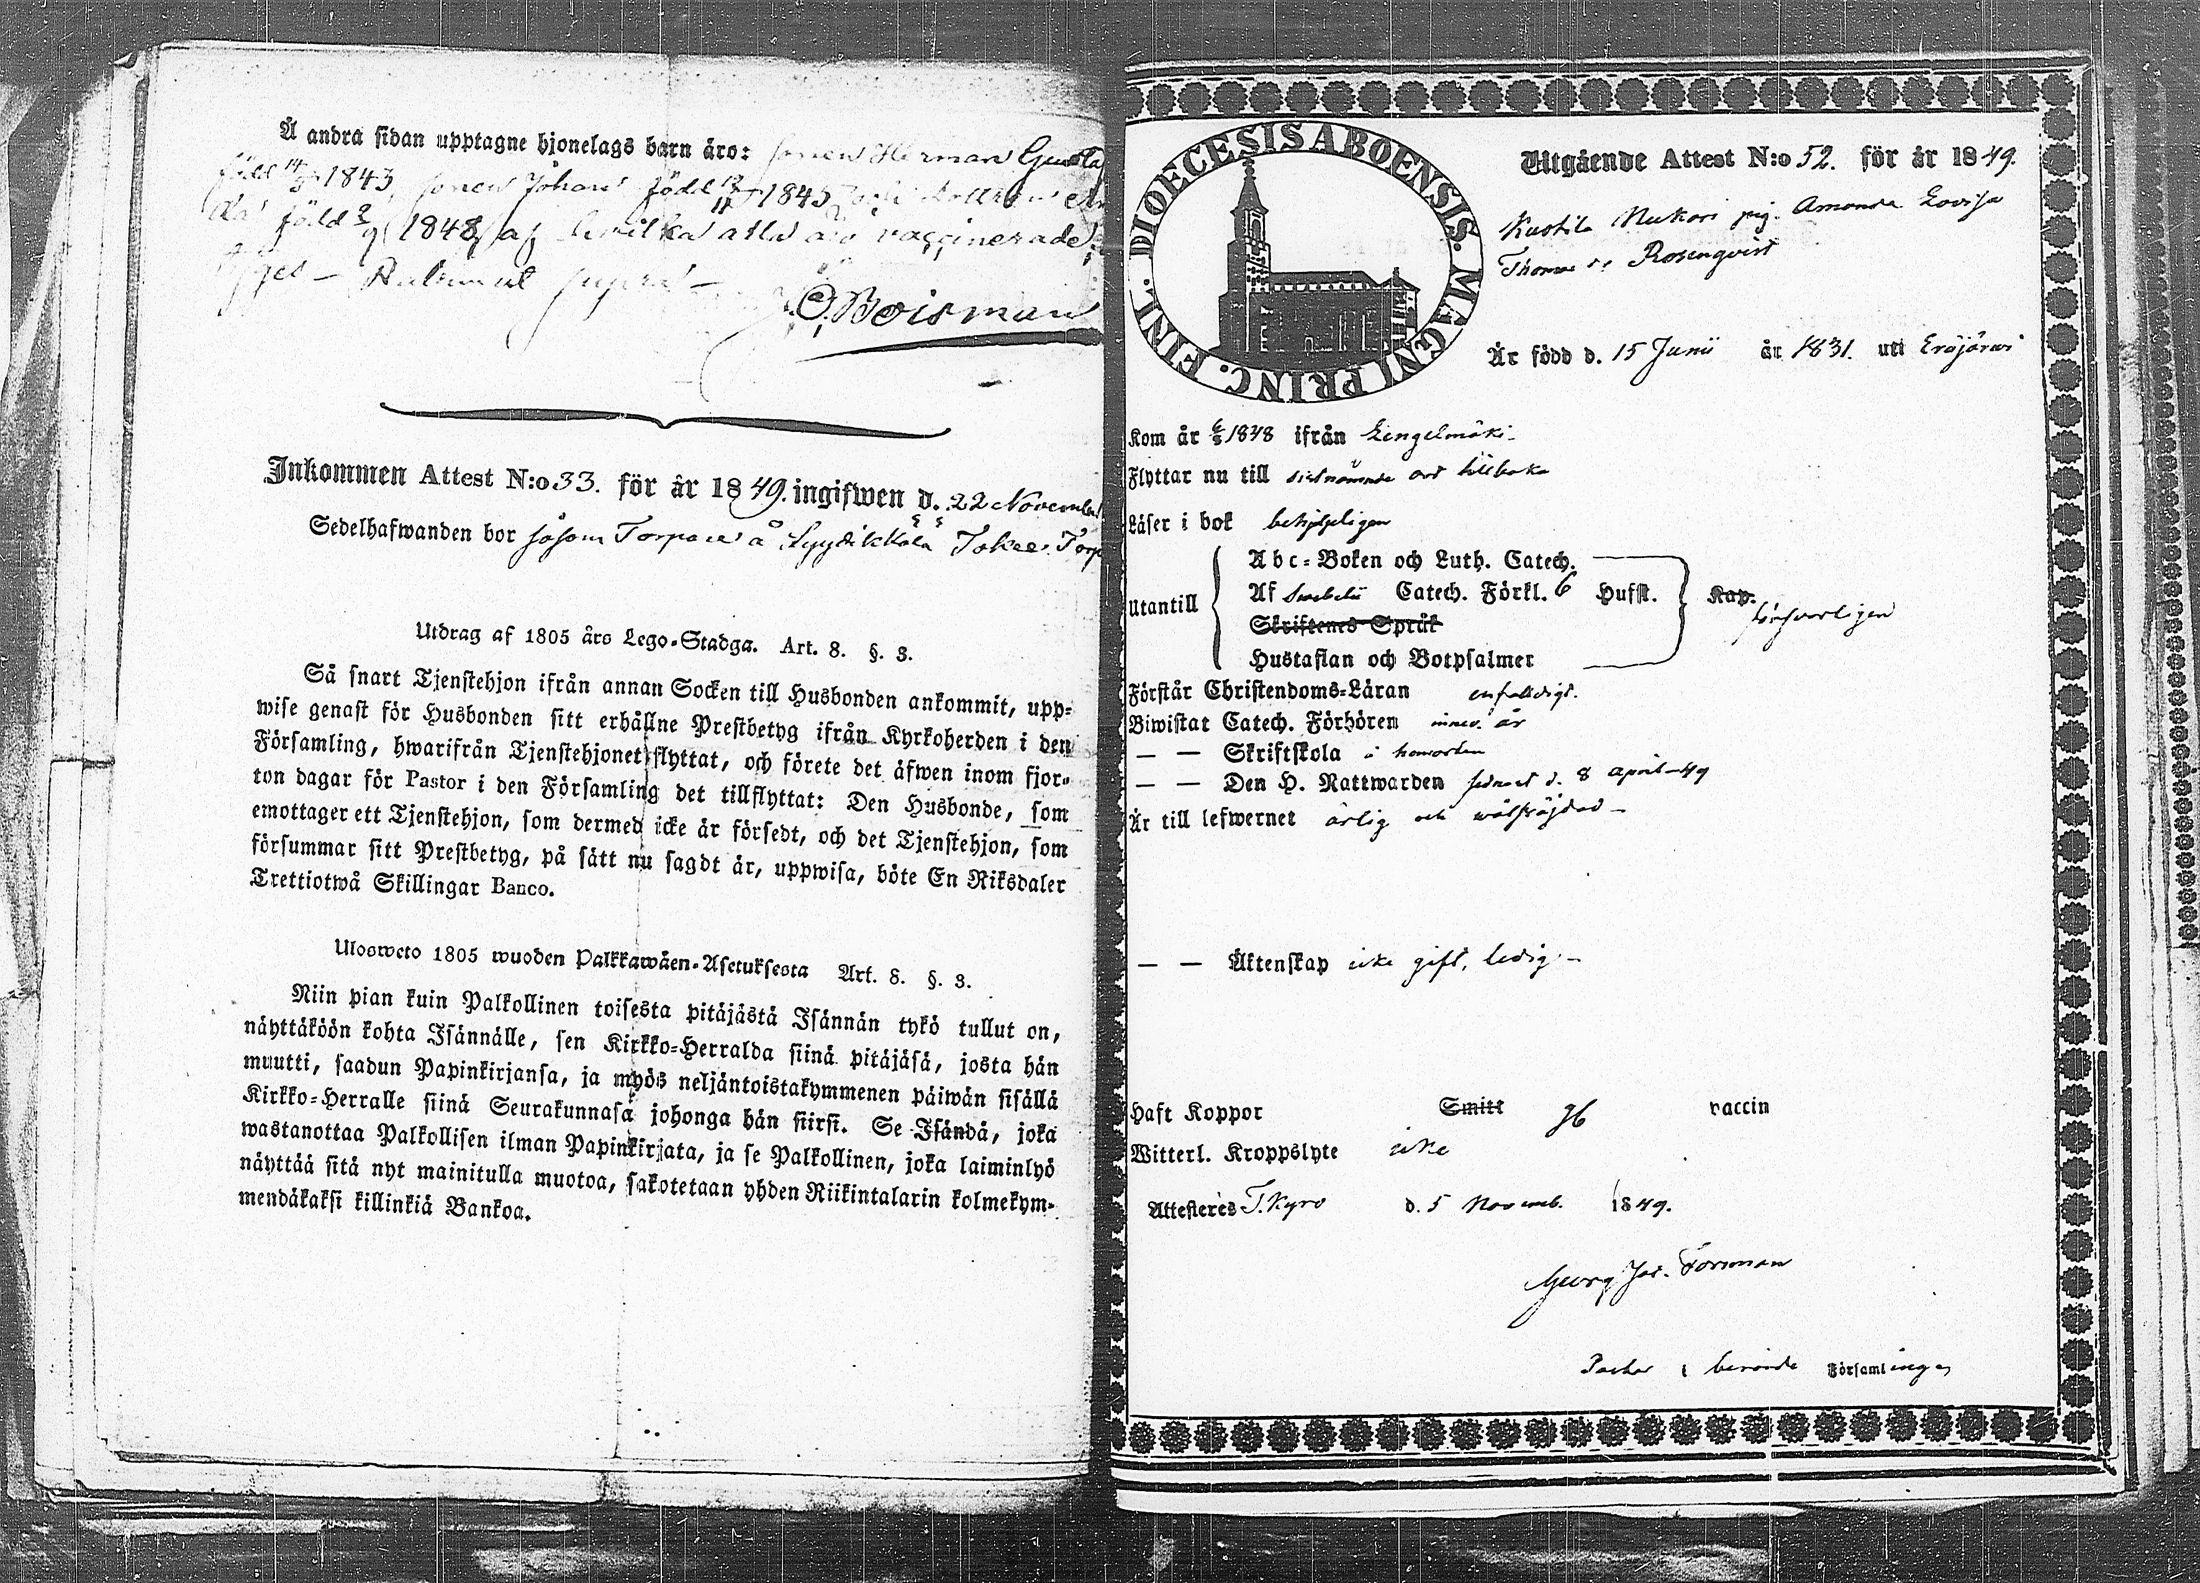 Å andra sidan upptagne hjonelags barn äro: sonen Herman Gusta
född 1843, sonen Johan född 1845
född 1848, af hvilka alla äro vaccinerade,
supra
O. Boisman
Inkommen Attest N:o 33. för år 1849. ingifwen d. 22 November
Sedelhafwanden bor såsom Torpare å Lyydikkälä Torp
Utdrag af 1805 års Lego-Stadga. Art. 8. §. 3.
Så snart Tjenstehjon ifrån annan Socken till Husbonden ankommit, upp-
wise genast för Husbonden sitt erhållne Prestbetyg ifrån Kyrkoherden i den
Församling, hwarifrån Tjenstehjonet flyttat, och förete det äfwen inom fjor-
ton dagar för Pastor i den Församling det tillflyttat: Den Husbonde, som
emottager ett Tjenstehjon, som dermed icke är försedt, och det Tjenstehjon, som
försummar sitt Prestbetyg, på sätt nu sagdt är, uppwisa, böte En Riksdaler
Trettiotwå Skillingar Banco.
Ulosweto 1805 wuoden Palkkawäen-Asetuksesta Art. 8. §. 3.
Niin pian kuin Palkollinen toisesta pitäjästä Isännän tykö tullut on,
näyttäköön kohta Isännälle, sen Kirkko-Herralda siinä pitäjäsä, josta hän
muutti, saadun Papinkirjansa, ja myös neljäntoistakymmenen päiwän sisällä
Kirkko-Herralle siinä Seurakunnasa johonga hän siirsi. Se Isändä, joka
wastanottaa Palkollisen ilman Papinkirjata, ja se Palkollinen, joka laiminlyö
näyttää sitä nyt mainitulla muotoa, sakotetaan yhden Riikintalarin kolmekym-
mendäkaksi killinkiä Bankoa.
DIOECESIS ABOENSIS. MAGNI PRINC. FINL.
Utgående Attest N:o 52. för år 1849.
Kustila Mukari pig. Amanda Lovisa
Thomas d:r Rosenqvist
Är född d. 15 Junii år 1831. uti Eräjärvi
Kom år 1848 ifrån Lengelmäki
Flyttar nu till sistnämnde ort tillbaka
Läser i bok behjelpeligen
Utantill
Abc-Boken och Luth. Catech.
Af Swebelii Catech. Förkl. 6 Hufst. Kap.
försvarligen
Skriftenes Språk
Hustaflan och Botpsalmer
Förstår Christendoms-Läran enfaldigt.
Biwistat Catech. Förhören innev. år
— — Skriftskola i hemorten
— — Den H. Nattwarden sednast d. 8 April -49
Är till lefwernet ärlig och wälfräjdad —
— — Äktenskap icke gift, ledig. —
Haft Koppor Smitt gb vaccin
Witterl. Kroppslyte icke
Attesteres T. Kyro d. 5 Novemb. 1849.
Georg Jac. Forsman
Pastor i berörde Församlingen